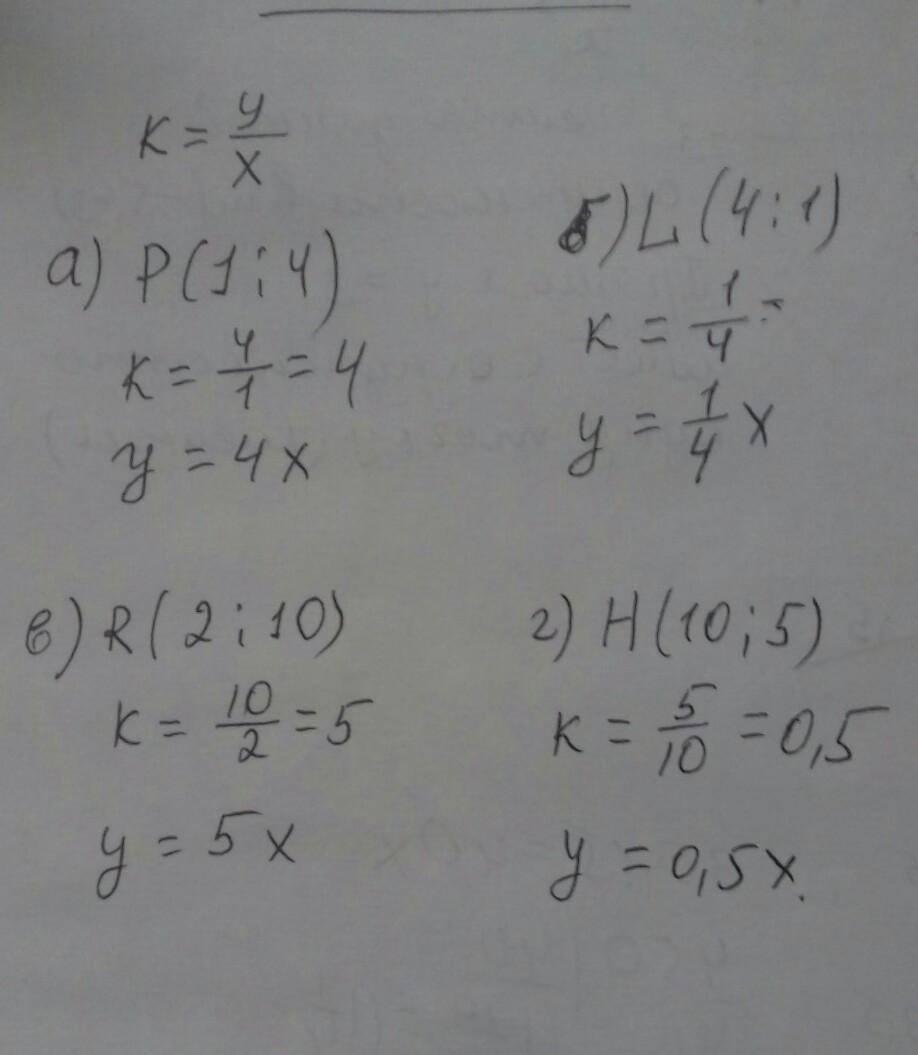 к = y/x
а) P(1;4)
к = 4/1 = 4
y = 4x
б) L(4;1)
к = 1/4 =
y = 1/4 x
в) R(2;10)
к = 10/2 = 5
y = 5x
г) H(10;5)
к = 5/10 = 0,5
y = 0,5x.